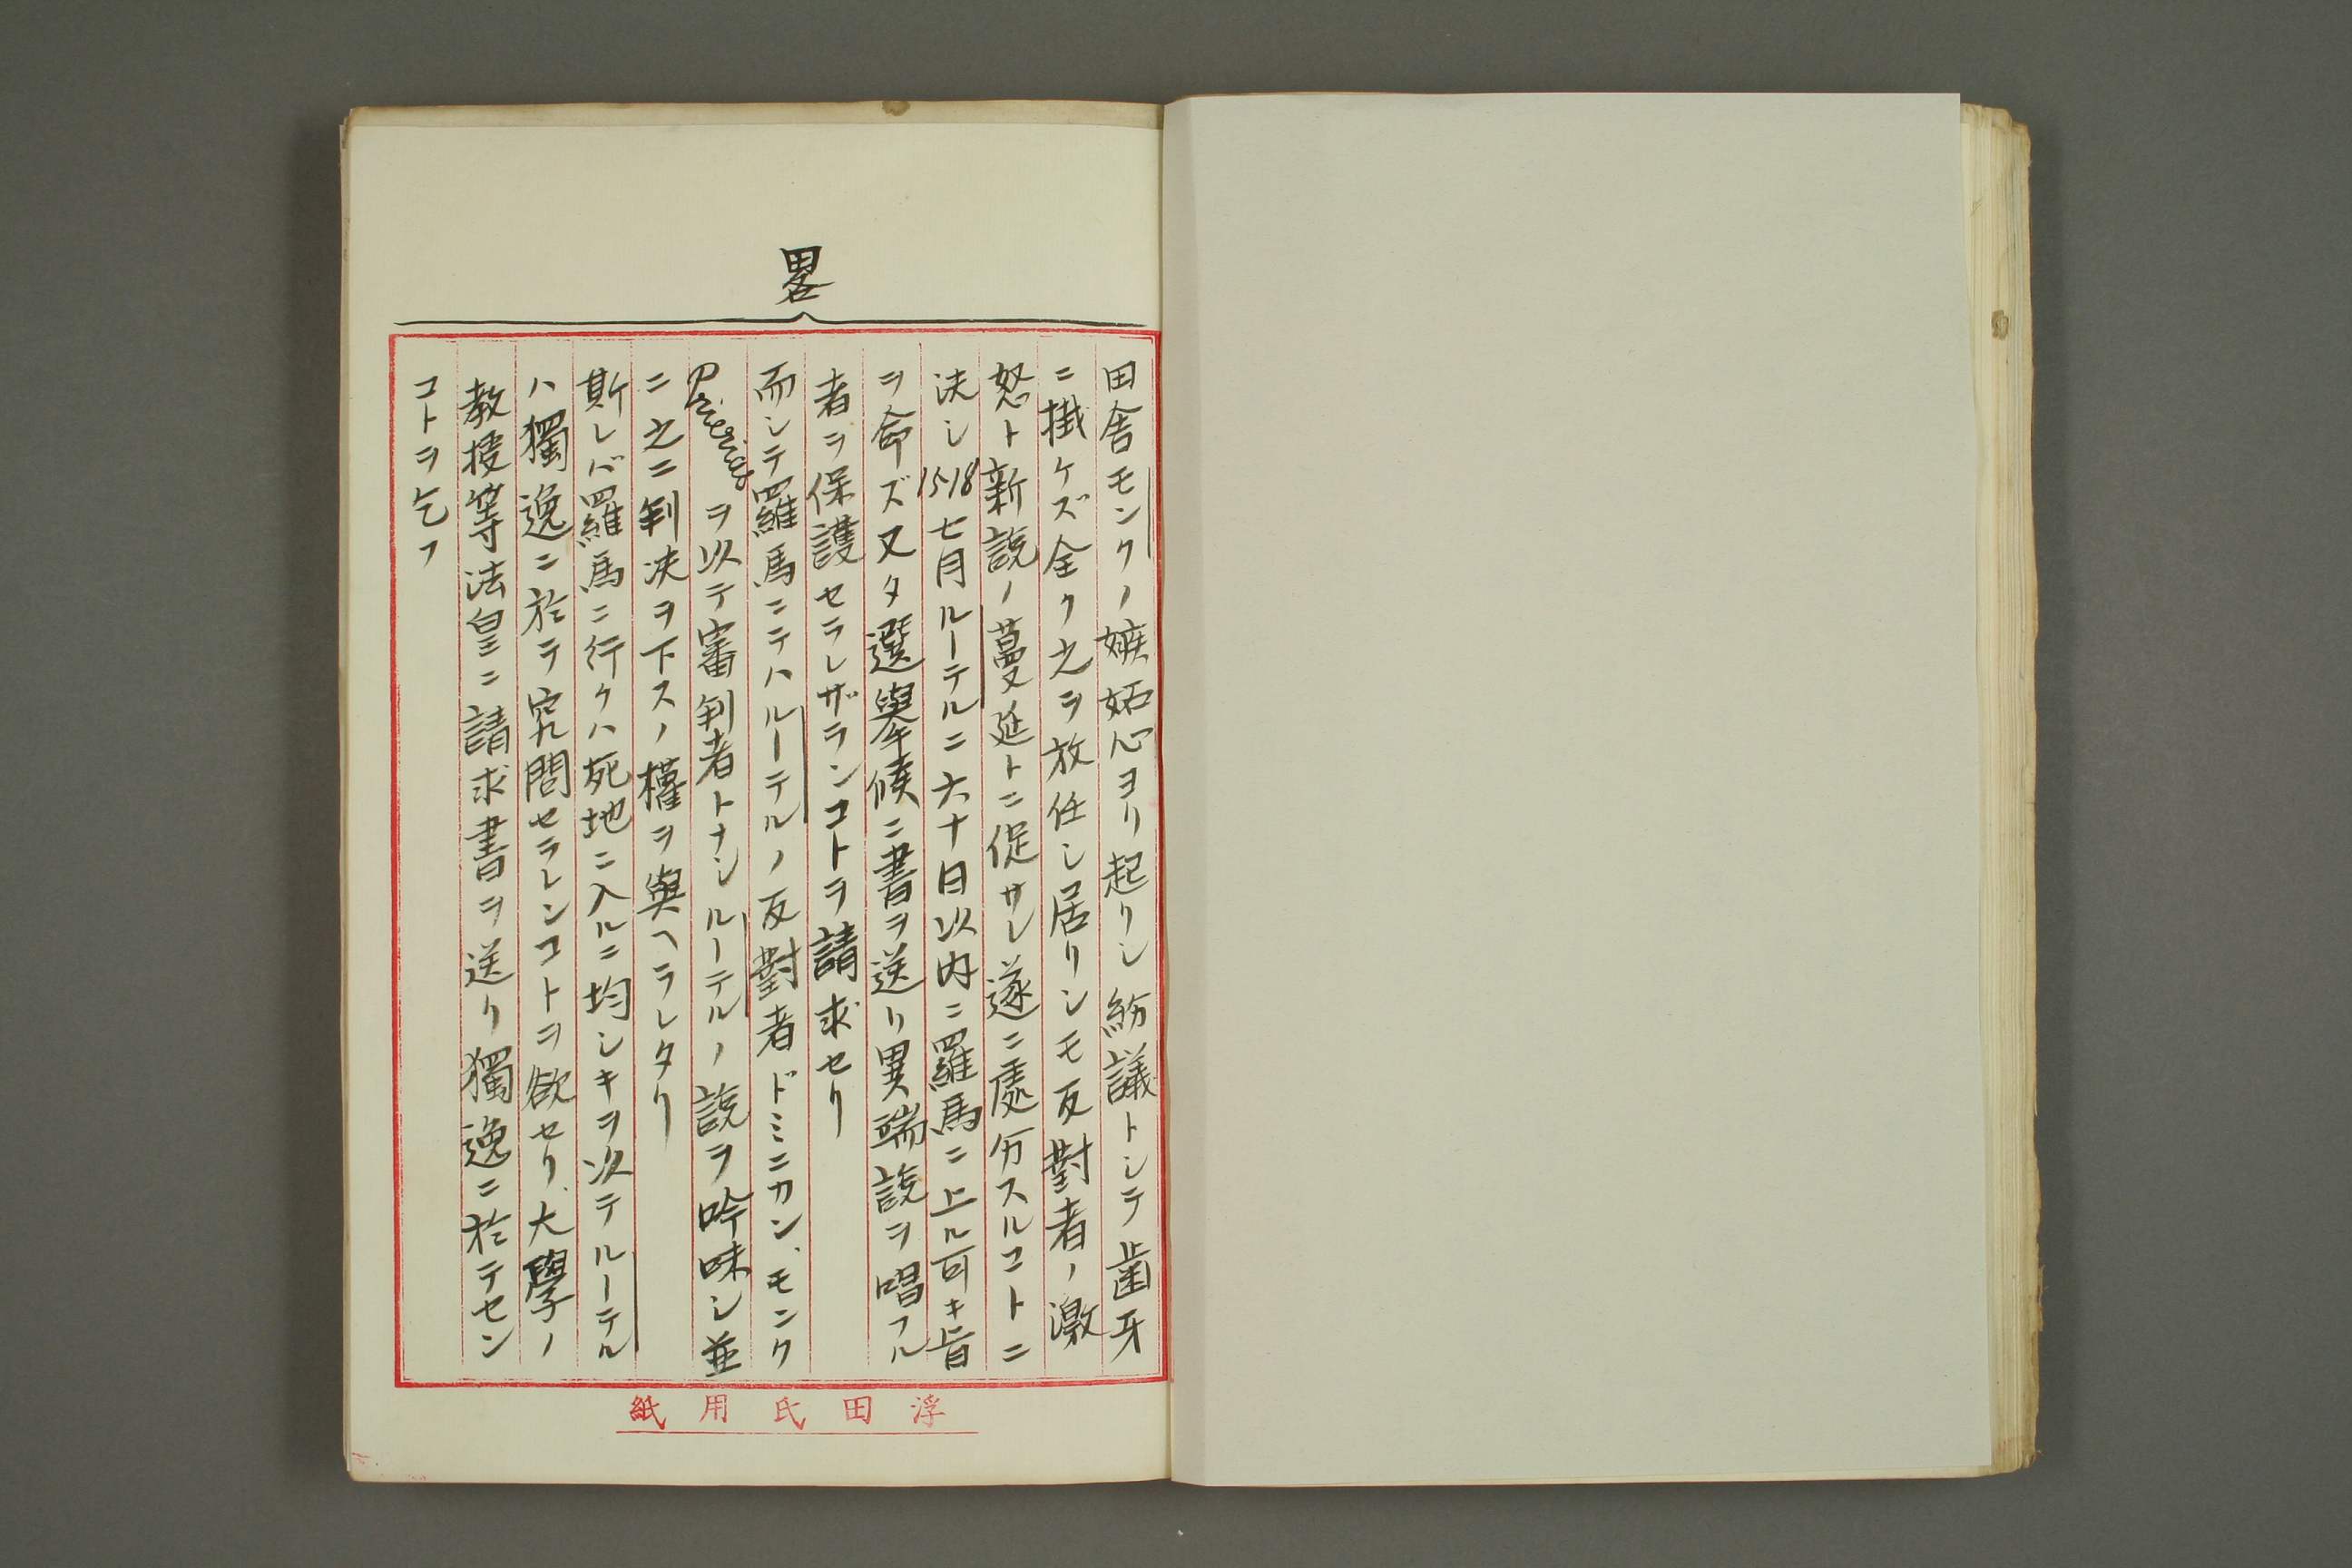 畧
田舎モンクノ嫉妬心ヨリ起リシ紛議トシテ歯牙
ニ掛ケズ全ク之ヲ放任シ居リシモ反對者ノ激
怒ト新説ノ蔓延トニ促サレ遂ニ處分スルコトニ
决シ1518七月ルーテルニ六十日以内ニ羅馬ニ上ル可キ旨
ヲ命ズ又タ選舉候ニ書ヲ送リ異端説ヲ唱フル
者ヲ保護セラレザランコトヲ請求セリ
而シテ羅馬ニテハルーテルノ反對者ドミニカン、モンク
Prierias ヲ以テ審判者トナシルーテルノ説ヲ吟味シ並
ニ之ニ判决ヲ下スノ權ヲ與ヘラレタリ
斯レバ羅馬ニ行クハ死地ニ入ルニ均シキヲ以テルーテル
ハ獨逸ニ於テ究問セラレンコトヲ欲セリ、大學ノ
教授等法皇ニ請求書ヲ送リ獨逸ニ於テセン
コトヲ乞フ
浮田氏用紙